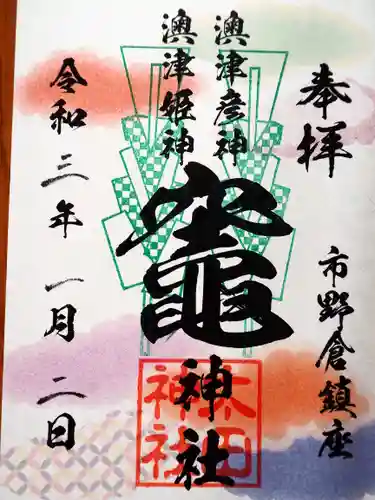 奉拝
市野倉鎮座
澳津彦神
澳津姫神
竈神社
太田
神社
令和三年一月二日